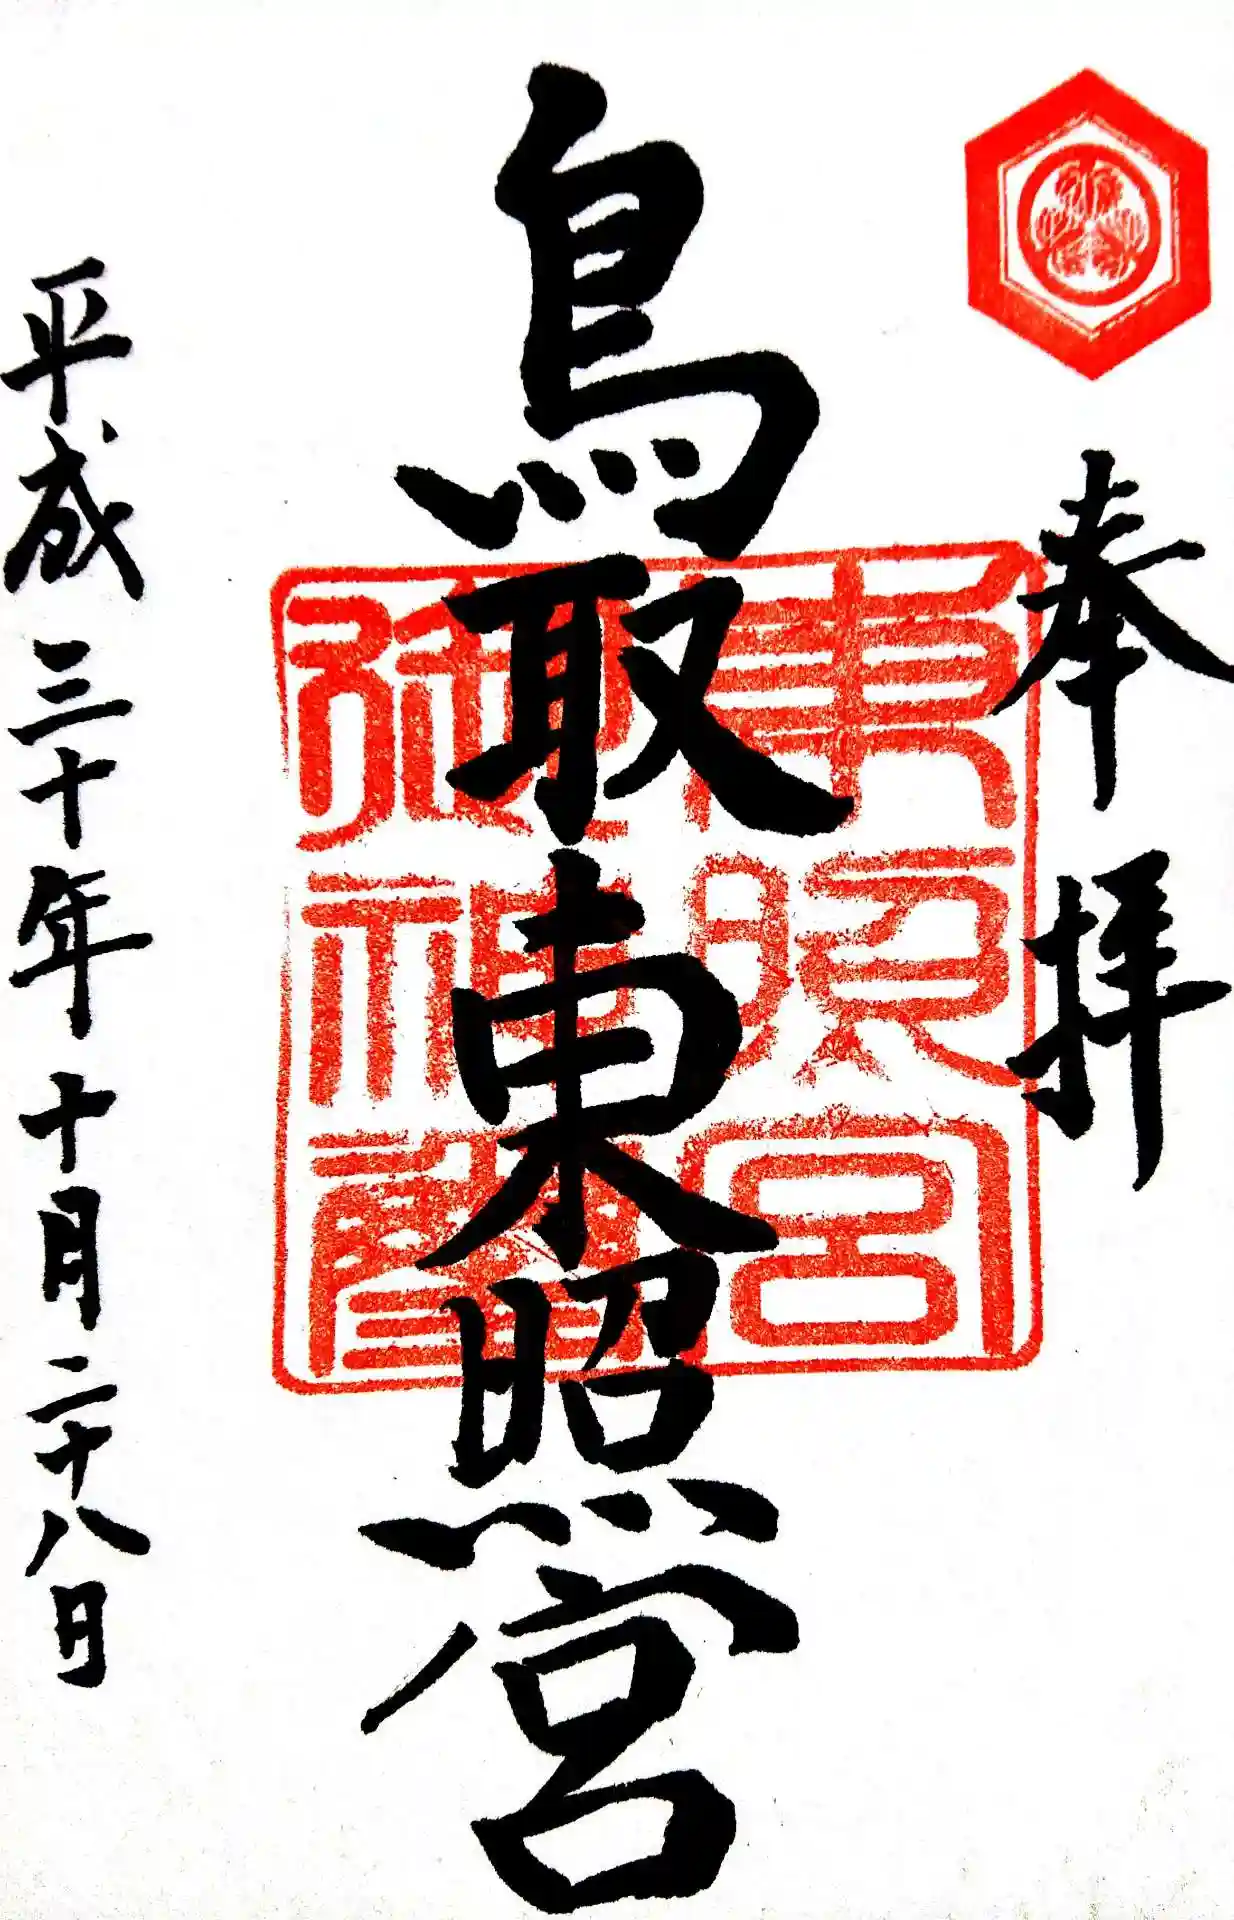 奉拝
鳥取東照宮
東照宮
御神璽
平成三十年十月二十八日